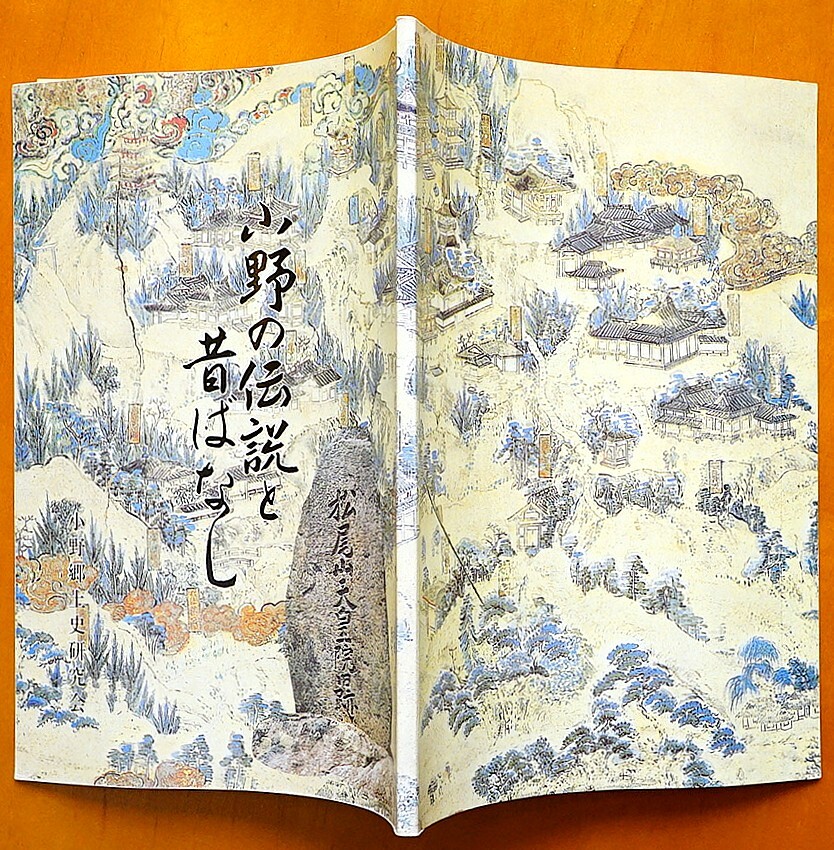 小野の伝説と
昔ばなし
小野郷土史研究会
松尾山・大乗三院旧跡